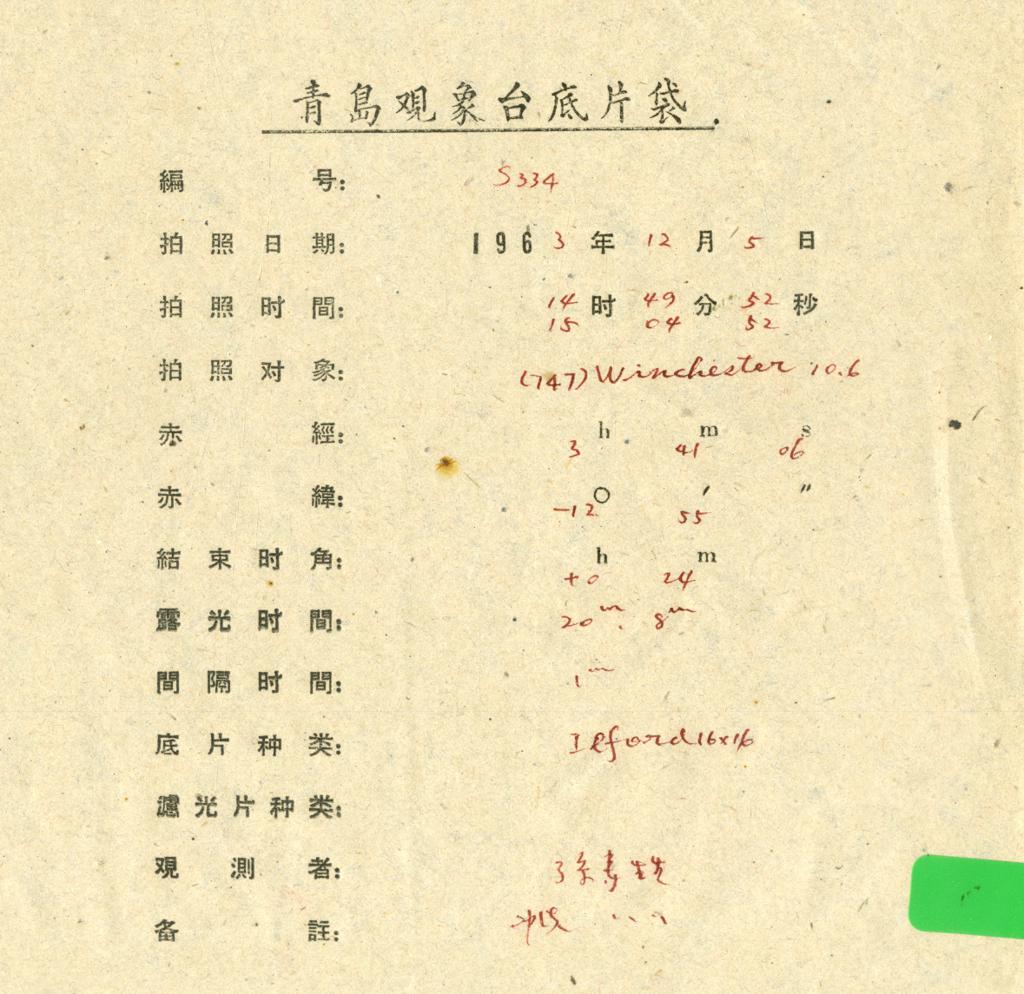 青島观象台底片袋.
編号: S334
拍照日期: 1963年12月5日
拍照时間: 14时49分52秒
15 04 52
拍照对象: (747)Winchester 10.6
赤經: 3h 41m 06s
赤緯: -12° 55′ ″
結束时角: +0h 24m
露光时間: 20m. 8m
間隔时間: 1m
底片种类: Ilford 16x16
濾光片种类:
观測者: 孫
备註: